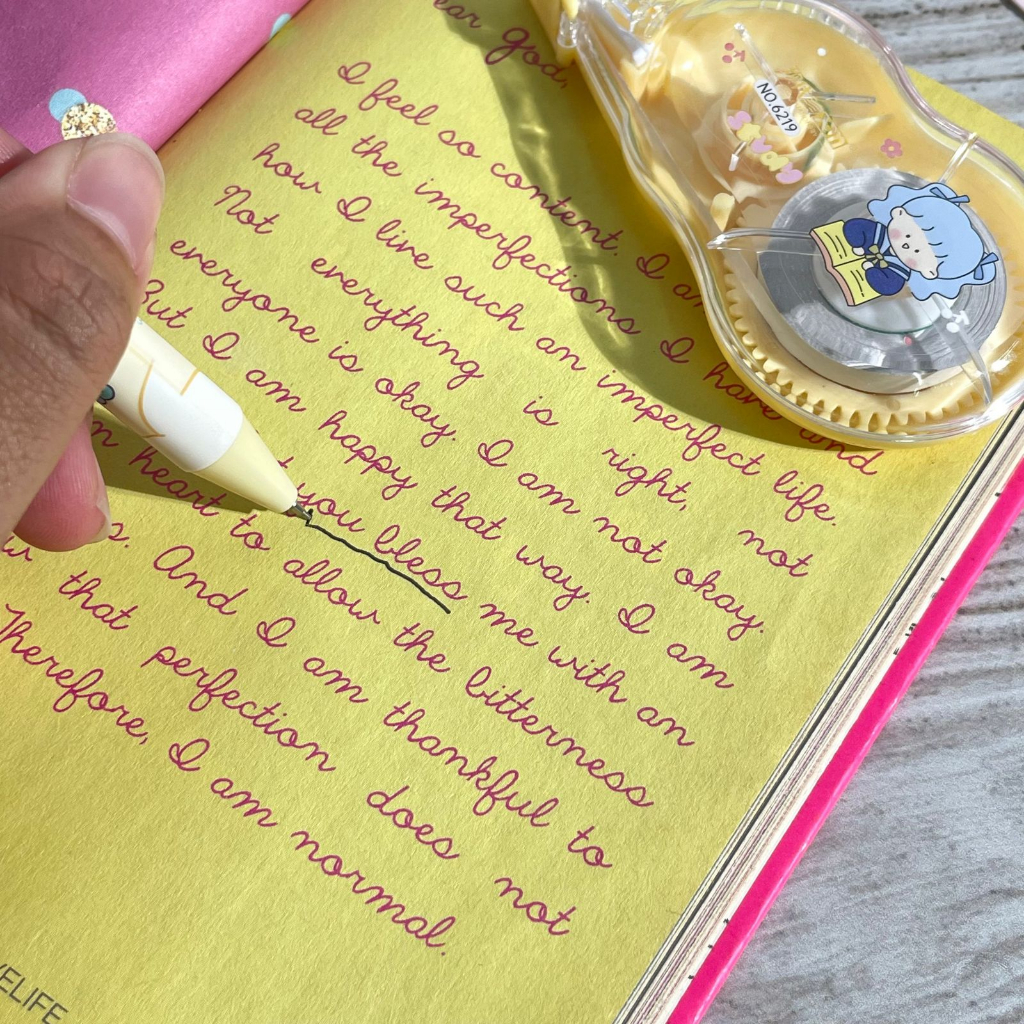 God,
I feel so content. I
all the imperfections I have and
how I live such an imperfect life.
Not everything is right, not
everyone is okay. I am not okay.
But I am happy that way. I am
you bless me with an
heart to allow the bitterness
And I am thankful to
that perfection does not
Therefore, I am normal.
NO.6219